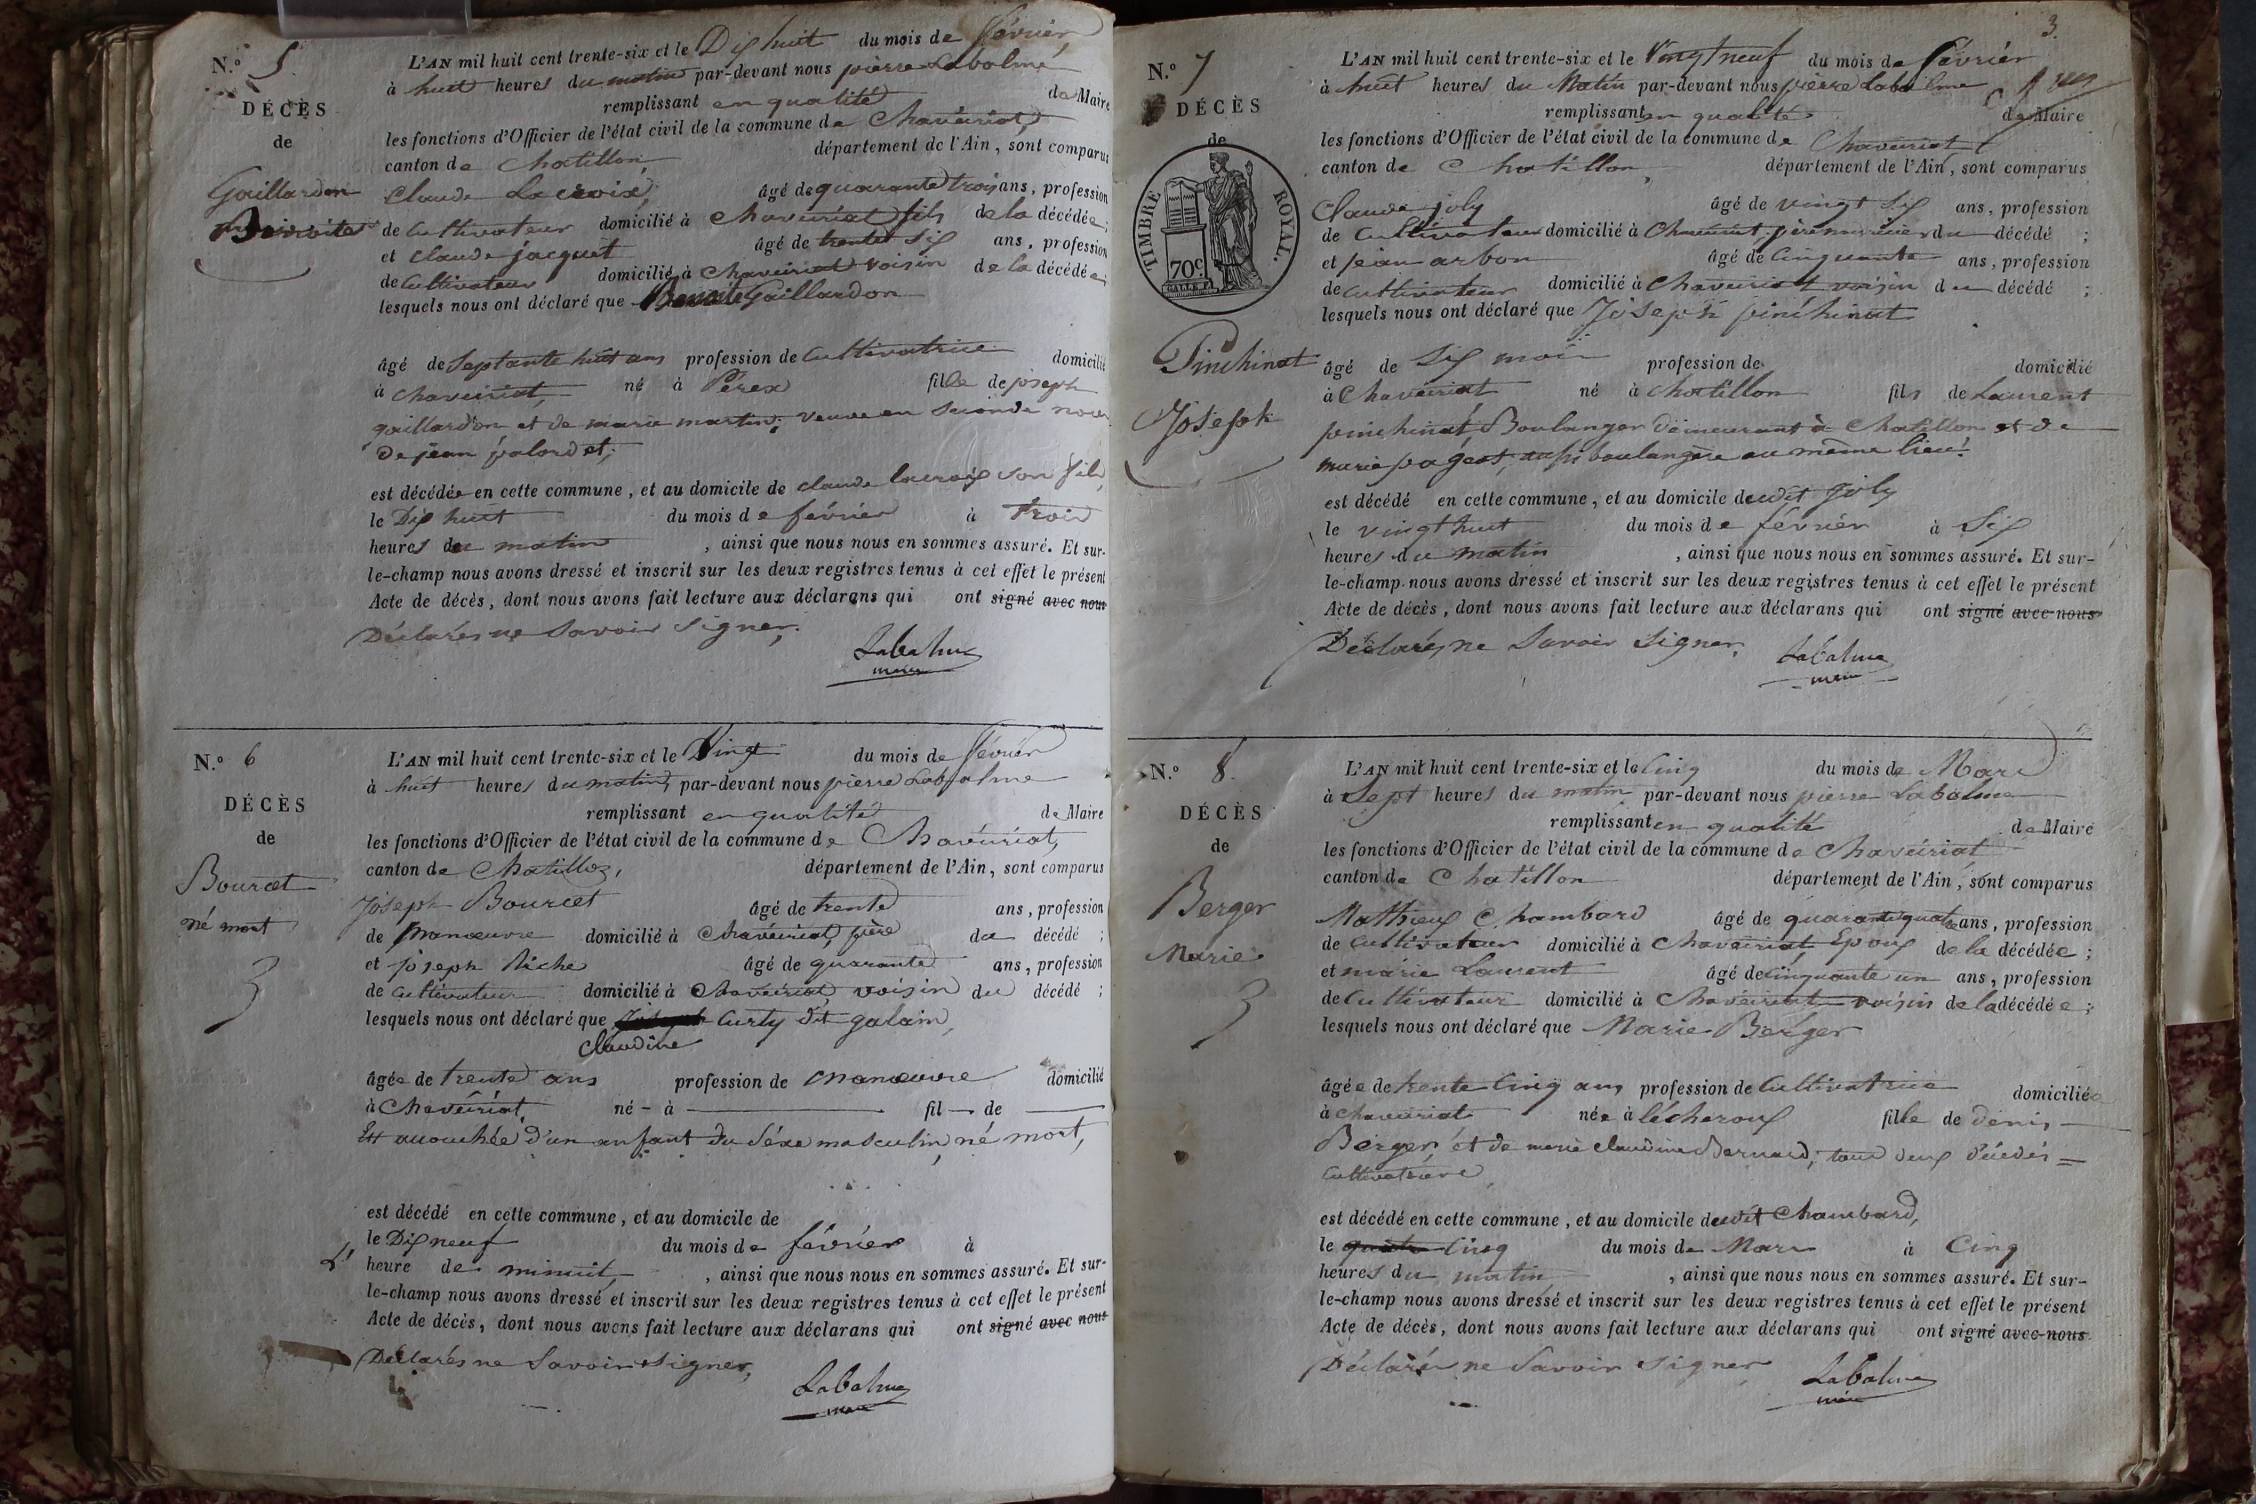 N.º 5
DÉCÈS
de
Gaillardon
Benoite
L'AN mil huit cent trente-six et le Dix huit du mois de février,
à huit heures du matin par-devant nous pierre Labalme
remplissant en qualité de Maire
les fonctions d'Officier de l'état civil de la commune de Chaveiriat,
canton de Chatillon, département de l'Ain, sont comparus
Claude Lacroix, âgé de quarante trois ans, profession
de Cultivateur domicilié à Chaveiriat fils de la décédée ;
et claude jacquet âgé de trente six ans, profession
de Cultivateur domicilié à Chaveiriat voisin de la décédée ;
lesquels nous ont déclaré que Benoite Gaillardon
âgé de Septante huit ans profession de Cultivatrice domicilié
à Chaveiriat, né à Perex fille de joseph
gaillardon et de marie martin; veuve en seconde noces
De jean palordet;
est décédée en cette commune, et au domicile de claude lacroix son fils,
le Dix huit du mois de février à trois
heures du matin, ainsi que nous nous en sommes assuré. Et sur-
le-champ nous avons dressé et inscrit sur les deux registres tenus à cet effet le présent
Acte de décès, dont nous avons fait lecture aux déclarans qui ont signé avec nous
Déclarés ne Savoir signer,
Labalme
maire
N.º 6
DÉCÈS
de
Bourcet
né mort
3
L'AN mil huit cent trente-six et le Vingt du mois de février
à huit heures du matin, par-devant nous pierre Labalme
remplissant en qualité de Maire
les fonctions d'Officier de l'état civil de la commune de Chaveiriat,
canton de Chatillon, département de l'Ain, sont comparus
Joseph Bourcet âgé de trente ans, profession
de manœuvre domicilié à Chaveiriat, père du décédé ;
et joseph Riche âgé de quarante ans, profession
de Cultivateur domicilié à Chaveiriat, voisin du décédé ;
lesquels nous ont déclaré que Joseph Curty dit galain,
Claudine
âgée de trente ans profession de manœuvre domicilié
à Chaveiriat, né - à — fil — de —
Est accouchée d'un enfant du séxe masculin, né mort,
est décédé en cette commune, et au domicile de
le Dix neuf du mois de février à
L' heure de minuit, ainsi que nous nous en sommes assuré. Et sur-
le-champ nous avons dressé et inscrit sur les deux registres tenus à cet effet le présent
Acte de décès, dont nous avons fait lecture aux déclarans qui ont signé avec nous
Déclarés ne Savoir signer,
Labalme
maire
3.
N.º 7
DÉCÈS
de
TIMBRE ROYAL.
70c.
Pinchinat
Joseph
L'AN mil huit cent trente-six et le Vingt neuf du mois de février
à huit heures du Matin par-devant nous pierre Labalme
remplissant en qualité de Maire
les fonctions d'Officier de l'état civil de la commune de Chaveiriat
canton de Chatillon, département de l'Ain, sont comparus
Claude joly âgé de vingt six ans, profession
de Cultivateur domicilié à Chaveiriat, père nourricier du décédé ;
et jean arbon âgé de Cinquante ans, profession
de Cultivateur domicilié à Chaveiriat voisin du décédé ;
lesquels nous ont déclaré que Joseph pinchinat
âgé de Six mois profession de domicilié
à Chaveiriat né à Chatillon fils de Laurent
pinchinat, Boulanger demeurant à Chatillon et de
marie pageot, aussi boulangère au même lieu.
est décédé en cette commune, et au domicile dudit Joly
le vingt huit du mois de février à Six
heures du matin, ainsi que nous nous en sommes assuré. Et sur-
le-champ nous avons dressé et inscrit sur les deux registres tenus à cet effet le présent
Acte de décès, dont nous avons fait lecture aux déclarans qui ont signé avec nous
Déclarés ne Savoir Signer.
Labalme
maire
N.º 8.
DÉCÈS
de
Berger
Marie
3
L'AN mil huit cent trente-six et le Cinq du mois de Mars
à Sept heures du matin par-devant nous pierre Labalme
remplissant en qualité de Maire
les fonctions d'Officier de l'état civil de la commune de Chaveiriat
canton de Chatillon département de l'Ain, sont comparus
Mathieux Chambard âgé de quarante quatre ans, profession
de Cultivateur domicilié à Chaveiriat Epoux de la décédée ;
et marie Laurent âgé de Cinquante un ans, profession
de Cultivateur domicilié à Chaveiriat voisin de la décédée ;
lesquels nous ont déclaré que Marie Berger
âgée de trente Cinq ans profession de Cultivatrice domiciliée
à Chaveiriat née à lécheroux fille de Denis
Berger, et de marie claudine Bernard; tous deux décédés =
Cultivateurs
est décédé en cette commune, et au domicile dudit Chambard,
le quatre Cinq du mois de Mars à Cinq
heures du matin, ainsi que nous nous en sommes assuré. Et sur-
le-champ nous avons dressé et inscrit sur les deux registres tenus à cet effet le présent
Acte de décès, dont nous avons fait lecture aux déclarans qui ont signé avec nous
Déclarés ne Savoir signer
Labalme
maire